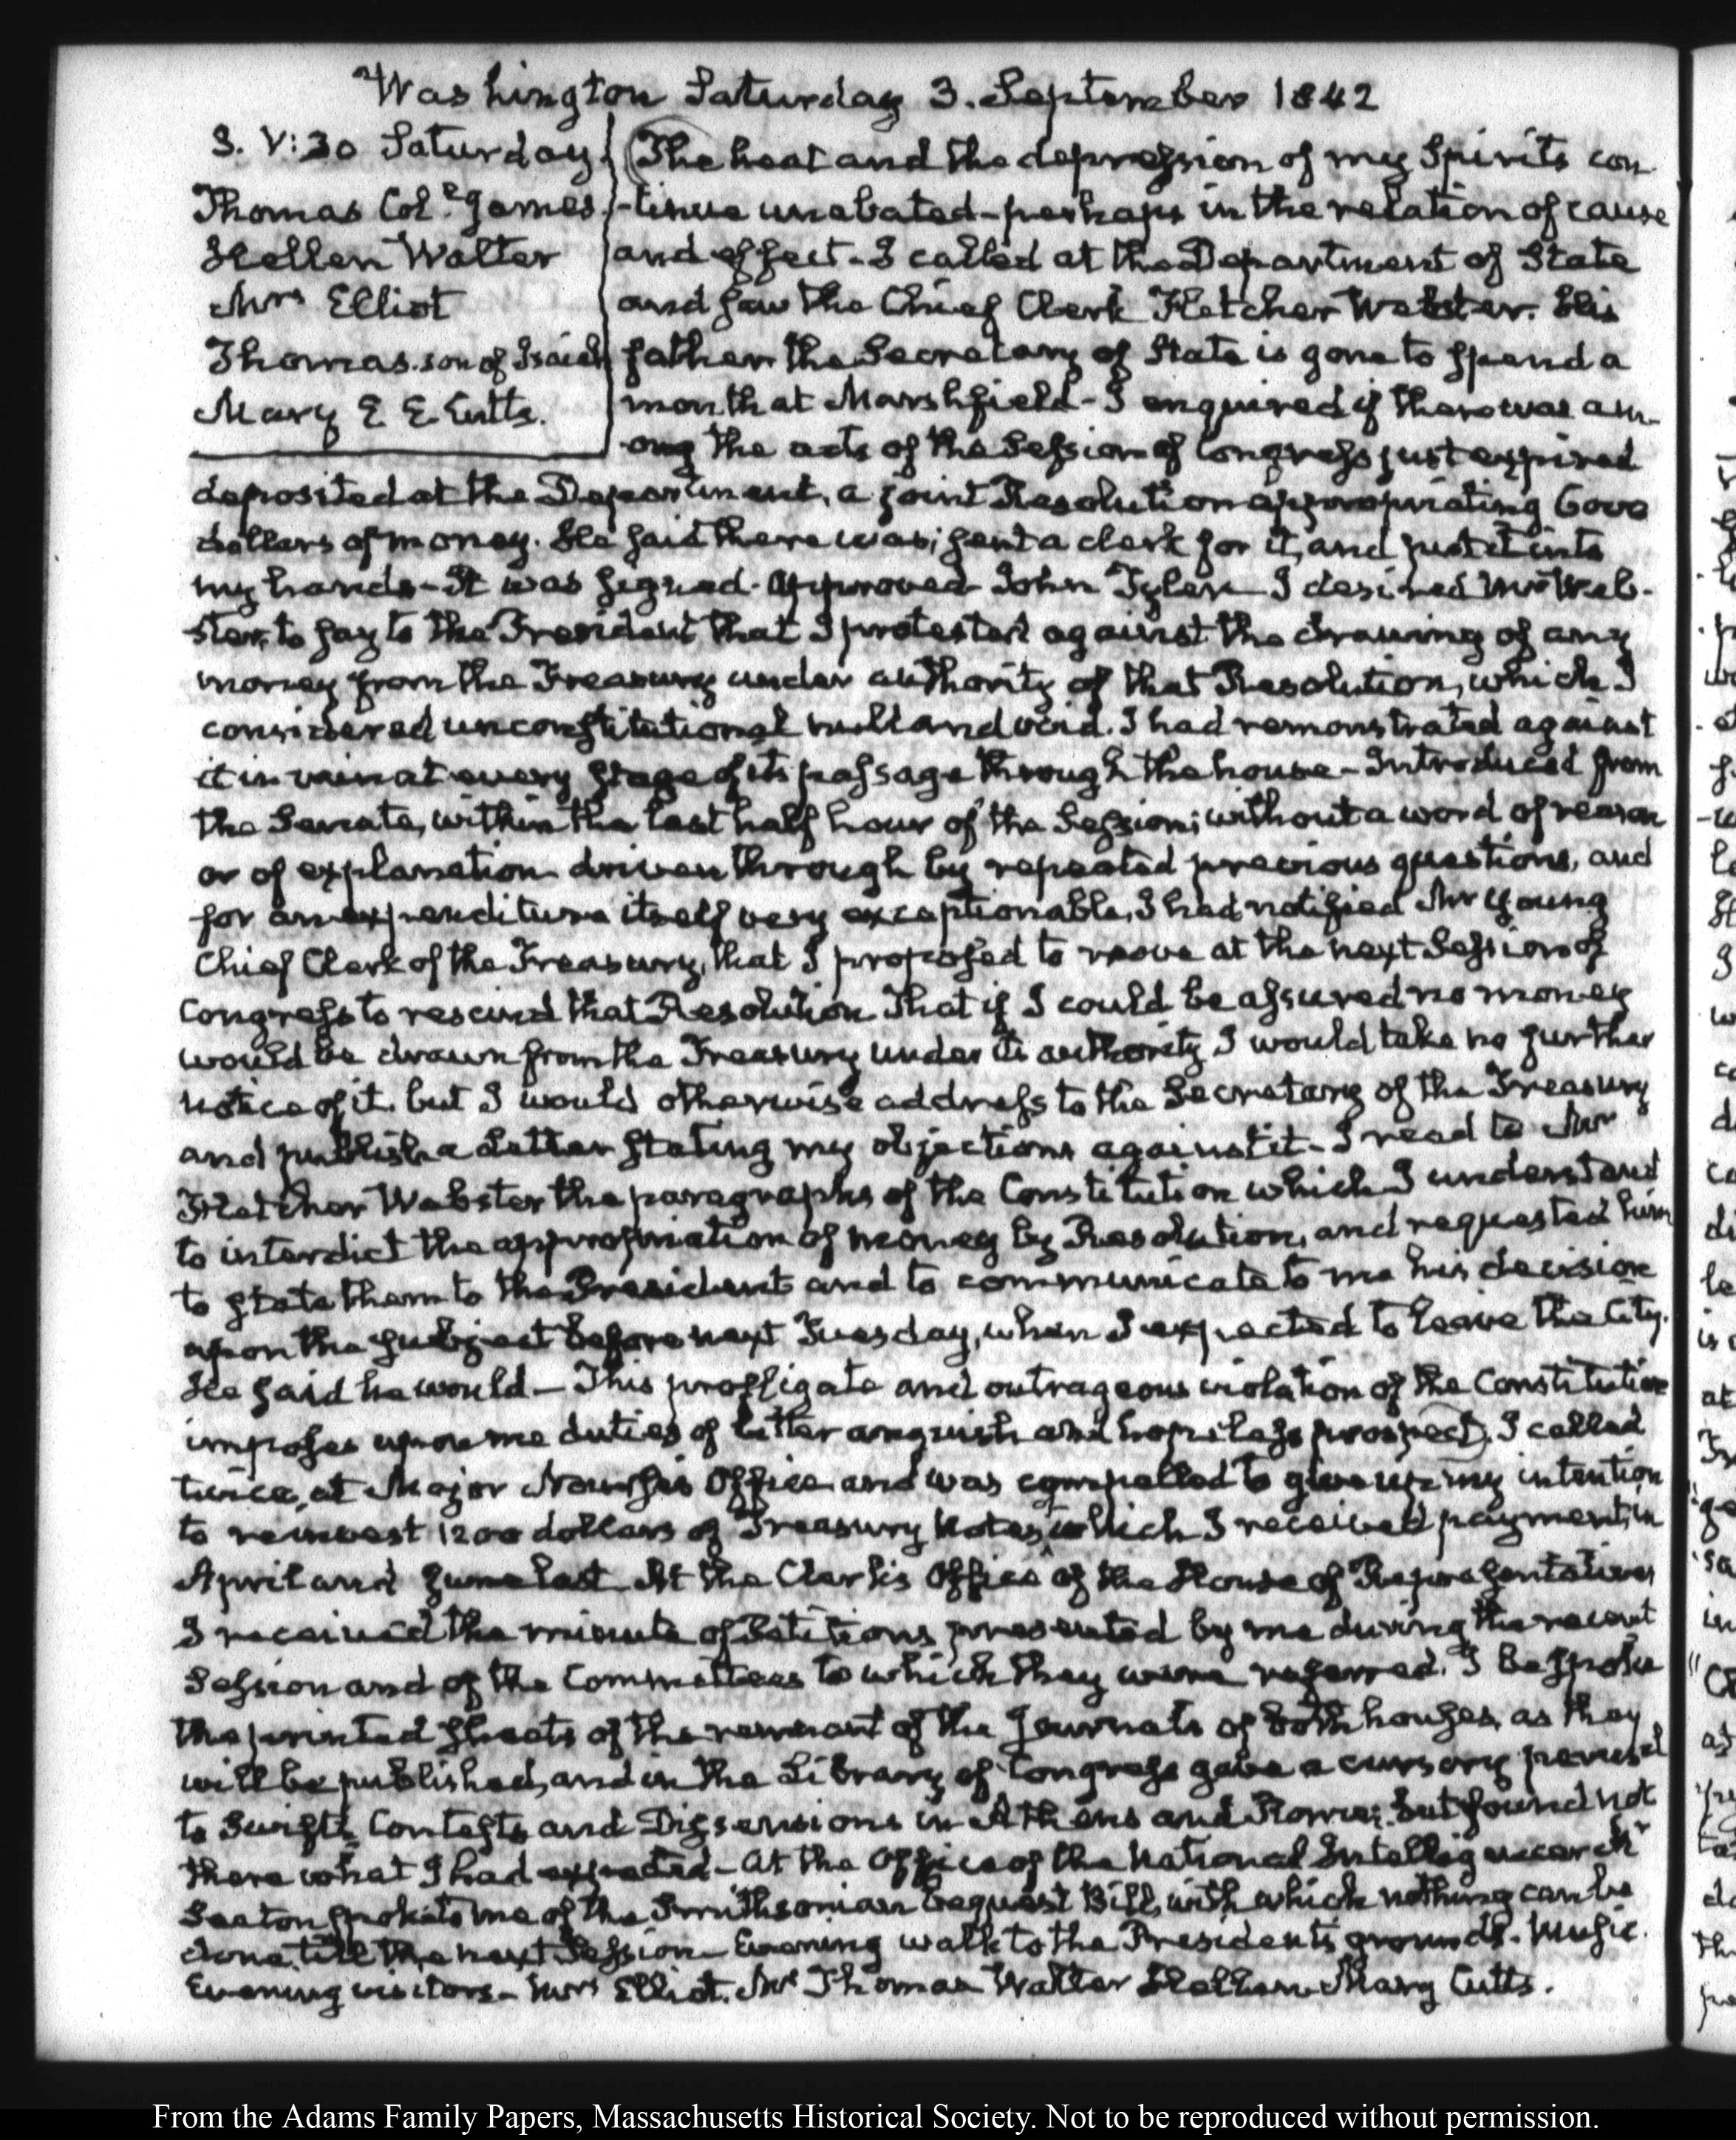 Washington Saturday 3. September 1842
3. V:30 Saturday
Thomas Col.l James.
Hellen Walter
Mrs Elliot
Thomas. son of Isaiah
Mary E E Cutts.
The heat and the depression of my Spirits con
-tinue unabated - perhaps in the relation of cause
and effect - I called at the Department of State
and saw the Chief Clerk Fletcher Webster. His
father the Secretary of State is gone to spend a
month at Marshfield - I enquired if there was am-
ong the acts of the Session of Congress just expired
deposited at the Department, a joint Resolution appropriating 6000
dollars of money. He said there was; sent a clerk for it, and put it into
my hands - It was signed - Approved John Tyler - I desired Mr Web-
ster, to say to the President that I protested against the drawing of any
money from the Treasury under authority of that Resolution, which I
considered unconstitutional null and void. I had remonstrated against
it in vain at every stage of its passage through the house - Introduced from
the Senate, within the last half hour of the Session; without a word of reason
or of explanation driven through by repeated previous questions, and
for an expenditure itself very exceptionable, I had notified Mr Young
Chief Clerk of the Treasury, that I proposed to move at the next Session of
Congress to rescind that Resolution That if I could be assured no money
would be drawn from the Treasury under its authority I would take no further
notice of it. but I would otherwise address to the Secretary of the Treasury
and publish a Letter stating my objections against it - I read to Mr
Fletcher Webster the paragraphs of the Constitution which I understand
to interdict the appropriation of money by Resolution, and requested him
to state them to the President and to communicate to me his decision
upon the subject before next Tuesday, when I expected to leave the City.
He said he would - This profligate and outrageous violation of the Constitution
imposes upon me duties of bitter anguish and hopeless prospect. I called
twice, at Major Nourse's Office and was compelled to give up my intention
to reinvest 1200 dollars of Treasury Notes, of which I received payment, in
April and June last At the Clerk's Office of the House of Representatives
I received the minute of Petitions presented by me during the recent
Session and of the Committees to which they were referred. I bespoke
the printed sheets of the remnant of the Journals of both houses, as they
will be published, and in the Library of Congress gave a cursory perusal
to Swift's Contests and Dissensions in Athens and Rome; but found not
there what I had expected - At the Office of the National Intelligencer Mr
Seaton spoke to me of the Smithsonian bequest Bill, with which nothing can be
done till the next Session - Evening walk to the President's grounds. Music.
Evening visitors - Mrs Elliot. Mr Thomas Walter Hellen Mary Cutts.
From the Adams Family Papers, Massachusetts Historical Society. Not to be reproduced without permission.